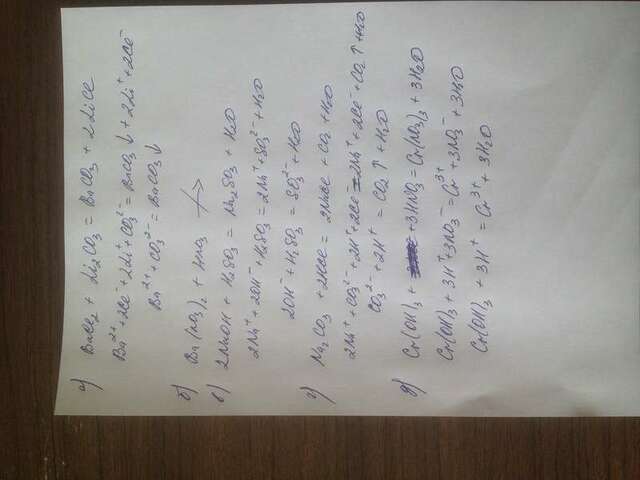 а) BaCl₂ + Li₂CO₃ = BaCO₃ + 2LiCl
Ba²⁺+2Cl⁻+2Li⁺+CO₃²⁻=BaCO₃↓+2Li⁺+2Cl⁻
Ba²⁺+CO₃²⁻=BaCO₃↓
б) Ba(NO₃)₂ + HNO₃ ↛
в) 2NaOH + H₂SO₃ = Na₂SO₃ + H₂O
2Na⁺+2OH⁻+H₂SO₃=2Na⁺+SO₃²⁻+H₂O
2OH⁻+H₂SO₃=SO₃²⁻+H₂O
г) Na₂CO₃ +2HCl=2NaCl+CO₂+H₂O
2Na⁺+CO₃²⁻+2H⁺+2Cl⁻=2Na⁺+2Cl⁻+CO₂↑+H₂O
CO₃²⁻+2H⁺=CO₂↑+H₂O
д) Cr(OH)₃+3HNO₃=Cr(NO₃)₃+3H₂O
Cr(OH)₃+3H⁺+3NO₃⁻=Cr³⁺+3NO₃⁻+3H₂O
Cr(OH)₃+3H⁺=Cr³⁺+3H₂O